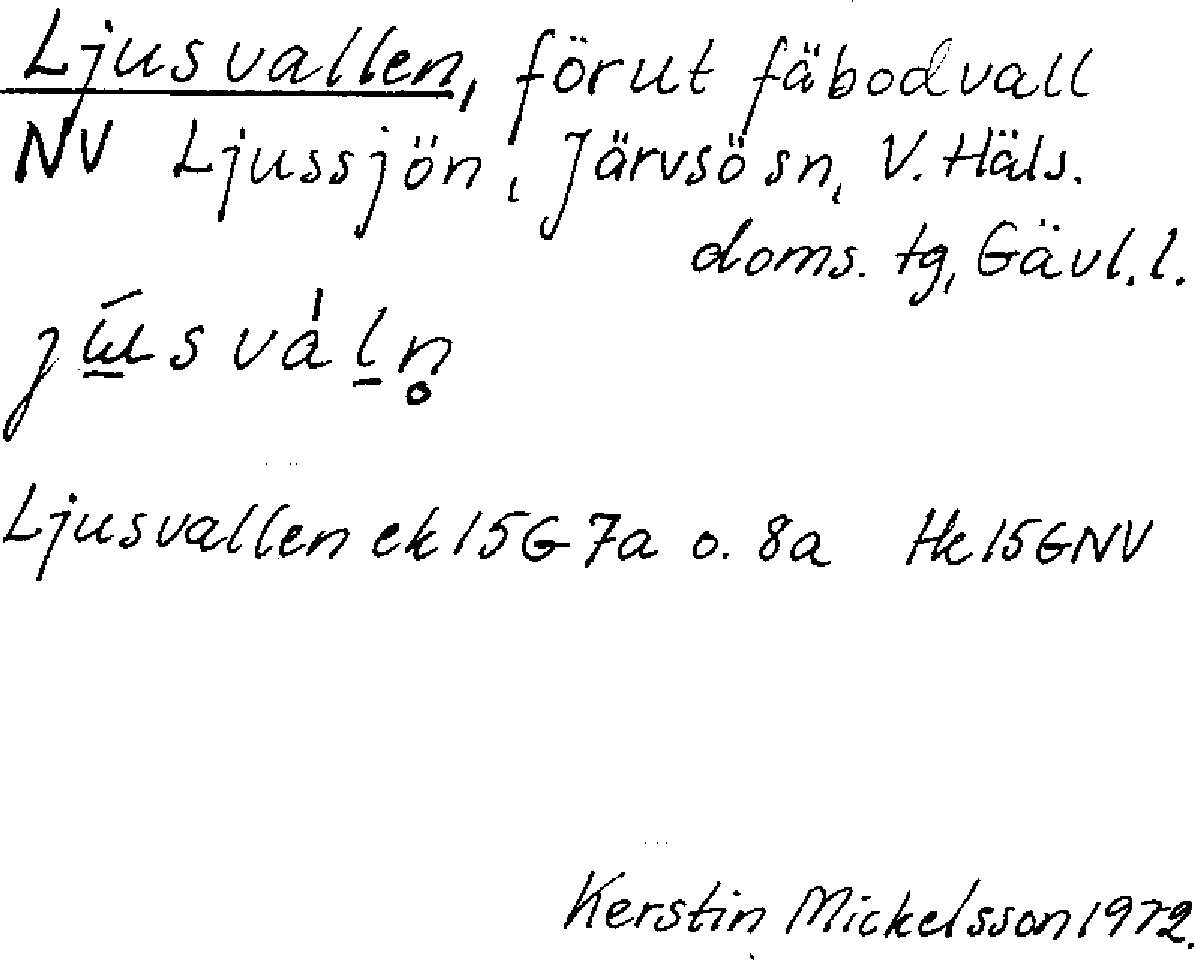 Ljusvallen, förut fäbodvall
NV Ljussjön, Järvsö sn, V. Häls.
doms. tg, Gävl. l.
Ljusvallen ek 15G 7a o. 8a Hk 15G NV
Kerstin Mickelsson 1972.